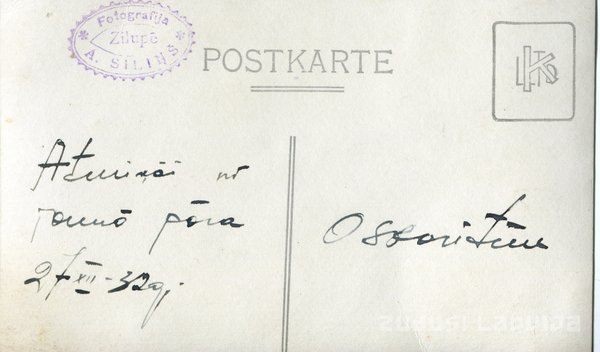 Fotografija
Zilupē
A. SILIŅŠ
POSTKARTE
Atmiņai no
jaunā pāra
27 XII - 32g.
zudusi Latvija